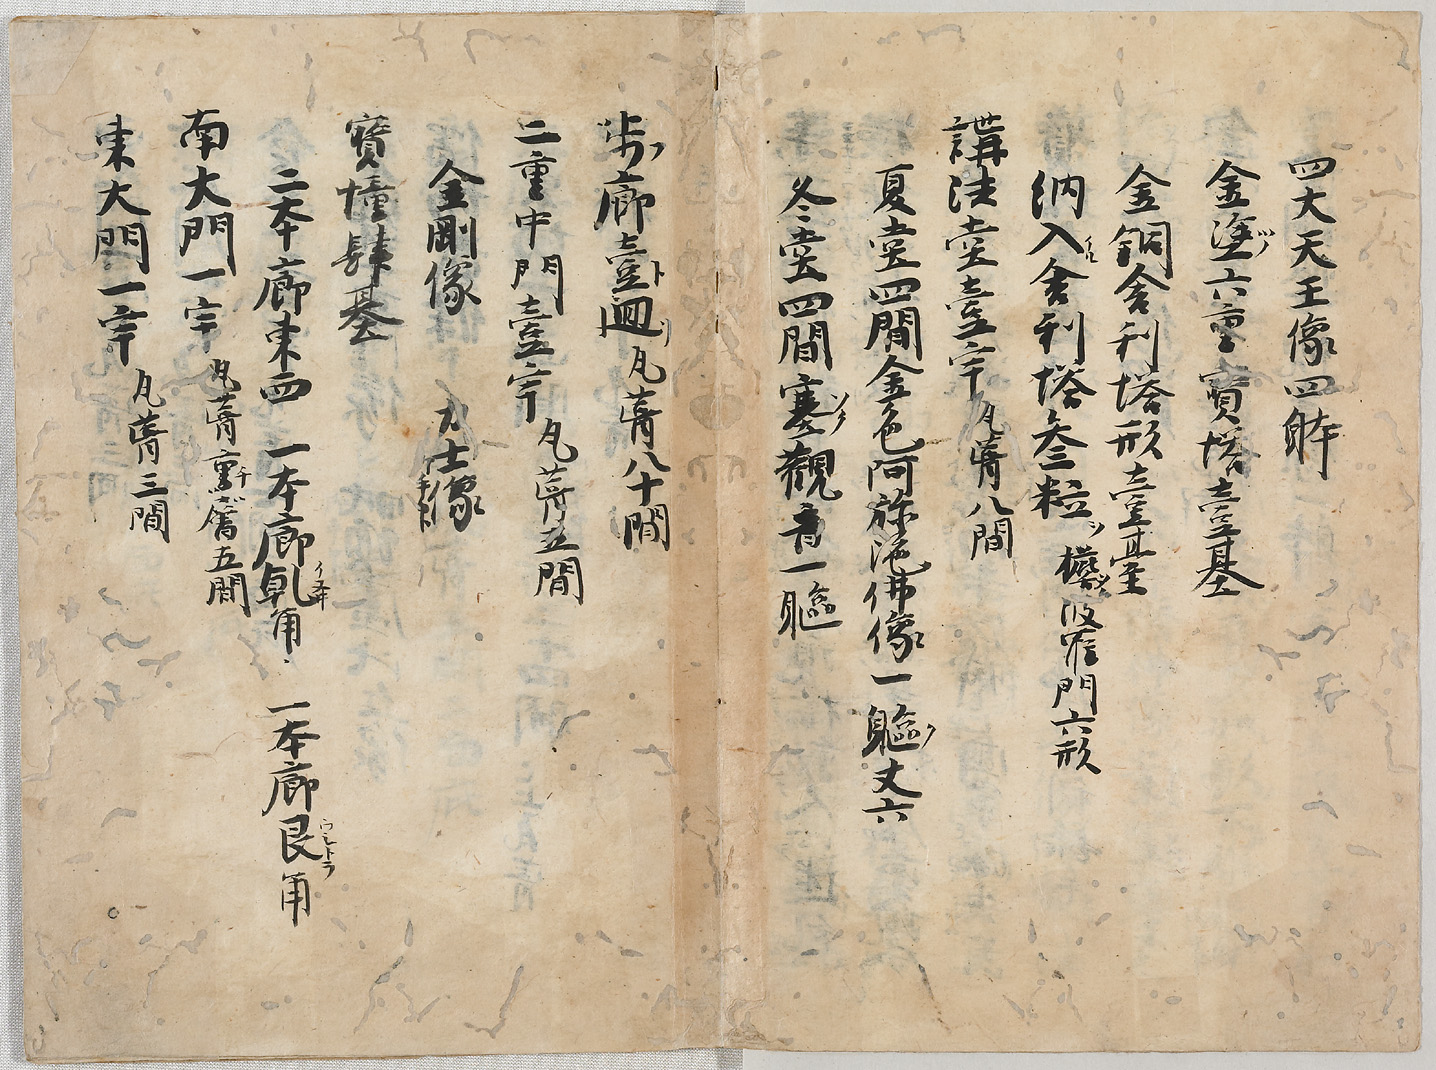 四大天王像四躰
金塗六重寶塔壹基
金銅舍利塔形壹臺
納入舍利塔叄粒 波羅門六形
講法堂壹宇 瓦葺八間
夏堂四間金色阿弥陀佛像一軀丈六
冬堂四間塞觀音一軀
步廊壹廻 瓦葺八十間
二重中門壹宇 瓦葺五間
金剛像 力士像
寶幢肆基
二本廊東西 一本廊乹イヌ井角 一本廊艮ウシトラ角
南大門一宇 瓦葺 五間
東大門一宇 瓦葺三間